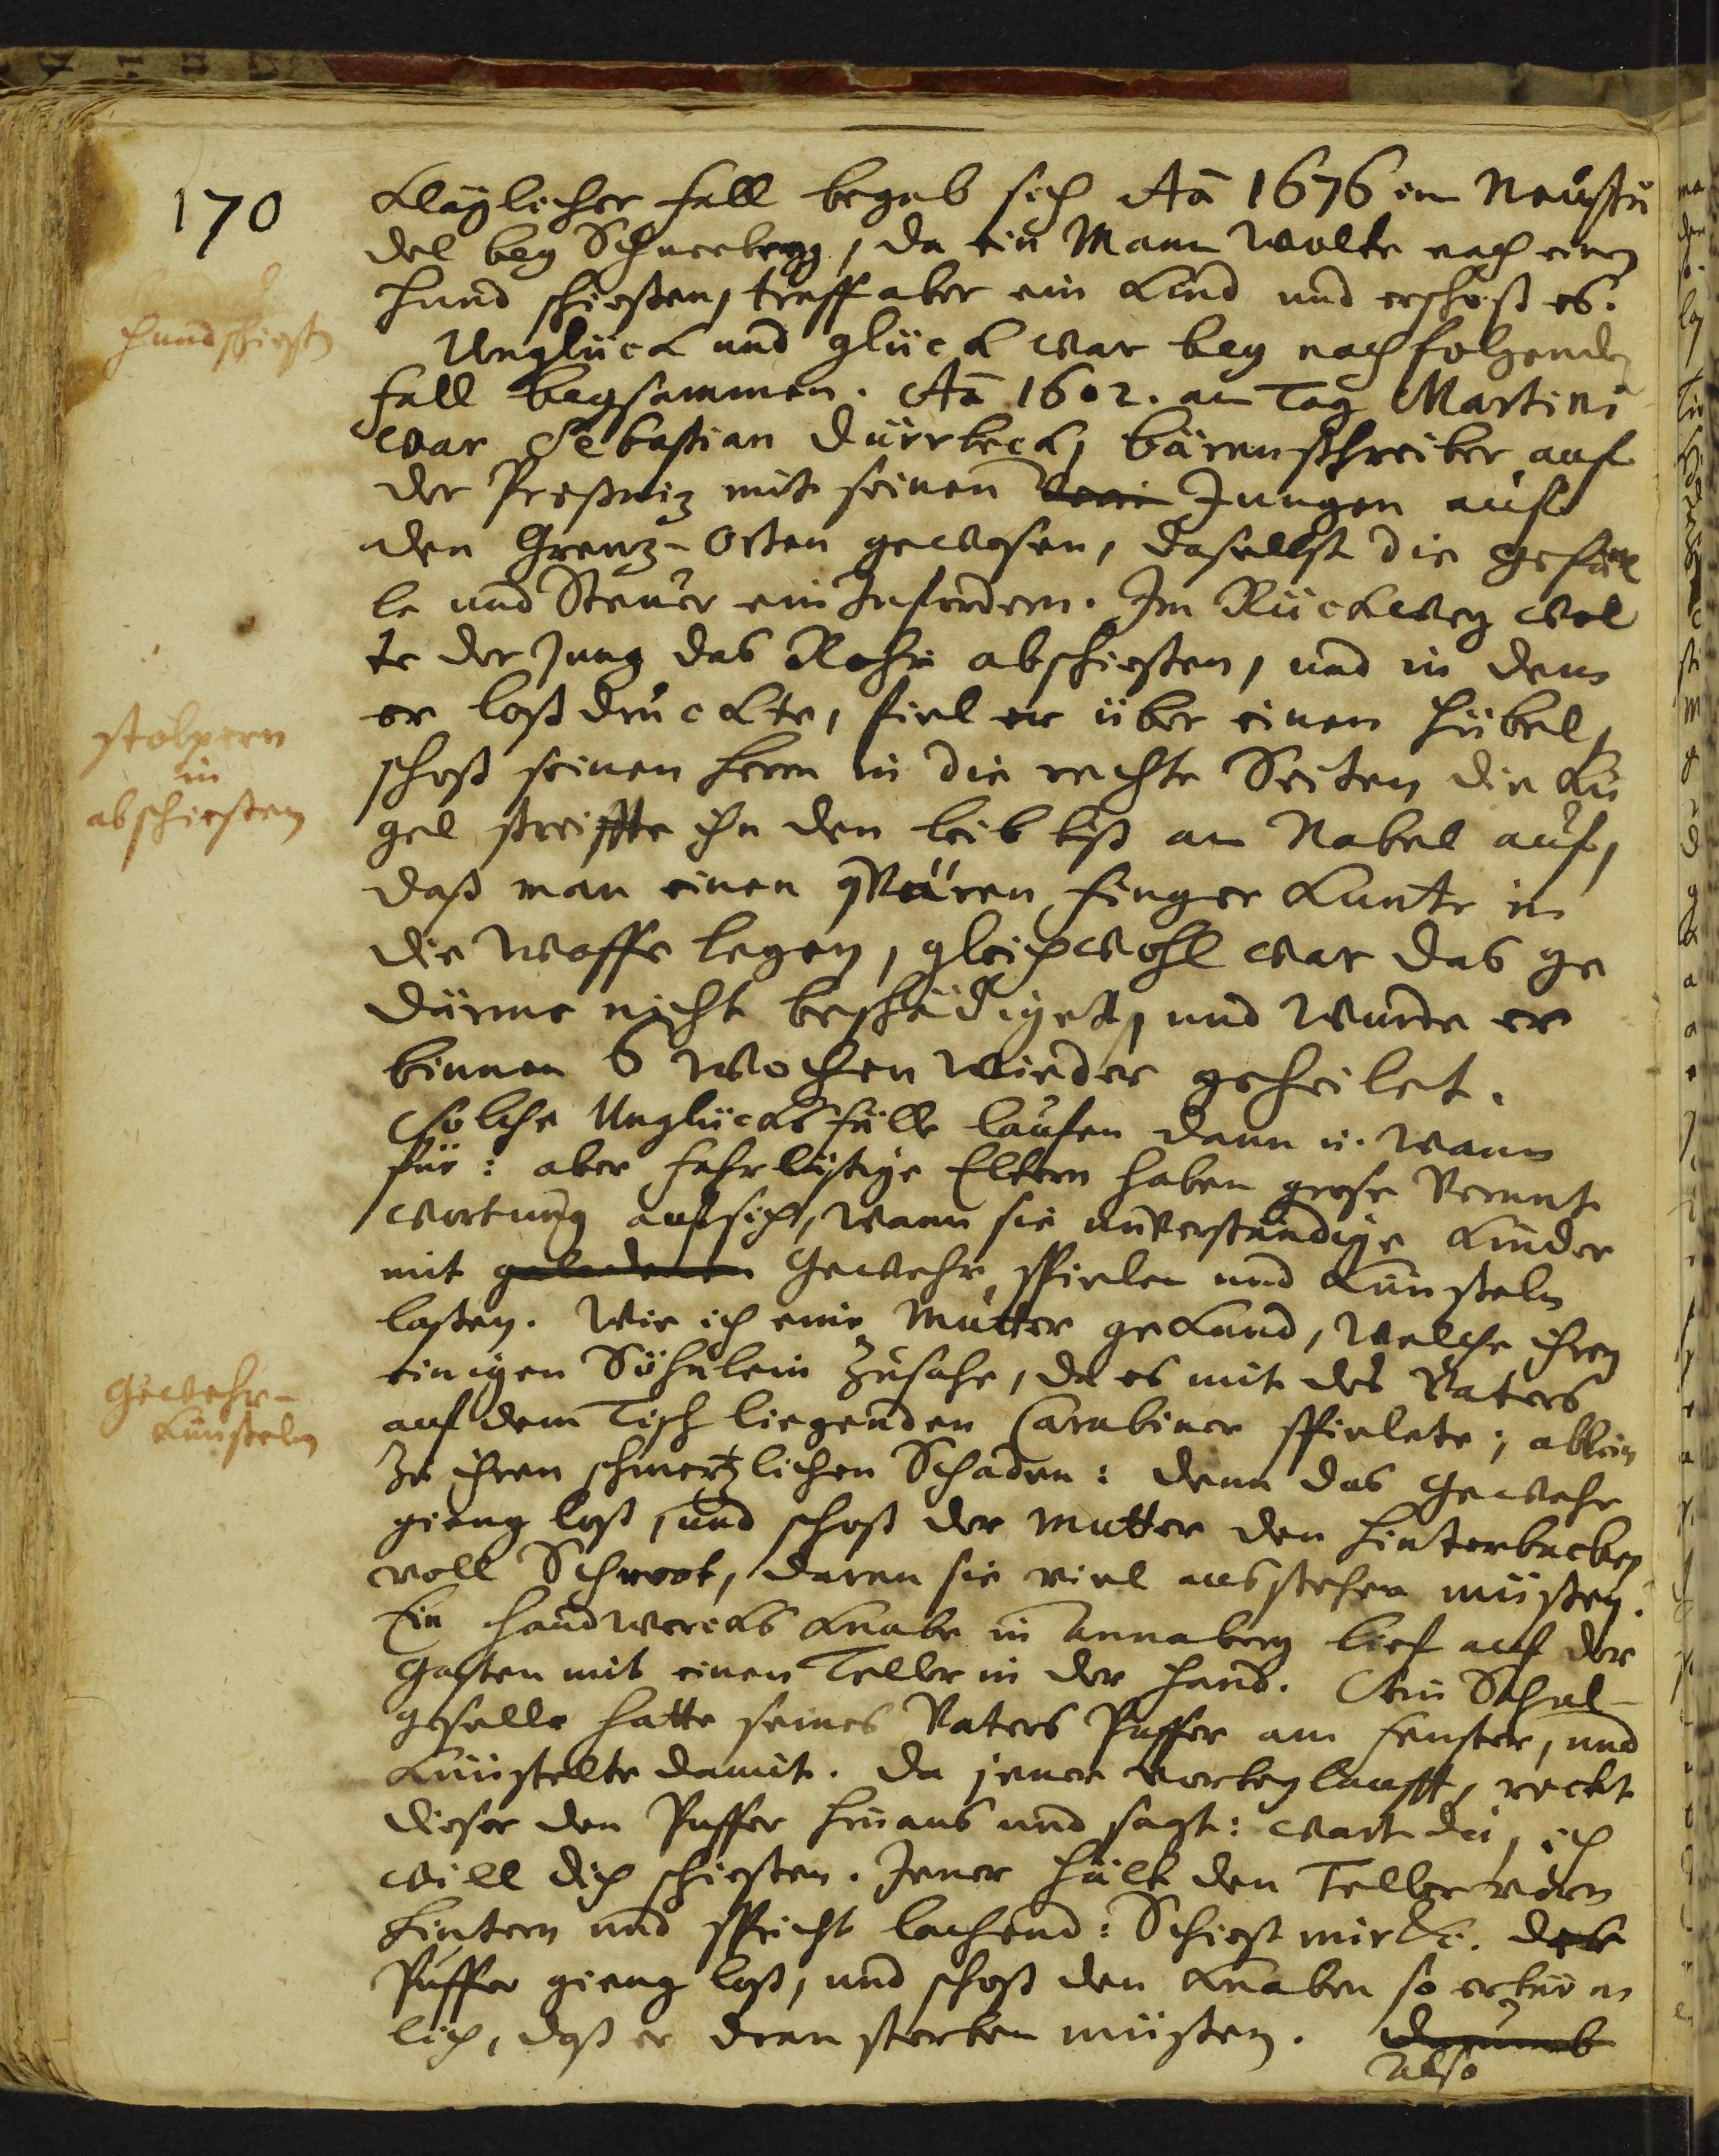 170
kläglicher fall begab sich Aō 1676 im Neustä
del bey Schneeberg, da ein Mann wolte nach einen
Hund schiesten, traff aber ein Kind und erschoß es.
hundschiesen
Unglück und glück war bey nachfolgenden
fall beysammen. Aō 1602. am Tag Martini
war Sebastian Dürrbeck, bärenschreiber auf
der Preßniz mit seinen Jungen auf
den Grenz-Orten gewesen, daselbst die gefäl
le und Steuer einzufordern. Im Rückweg wol
te der Jung das Rohr abschiesten, und in dem
er loßdruckte, fiel er über einen Hübel,
stolpern
in
abschiesten
schoß seinen Herrn in die rechte Seiten die Ku
gel streiffte ihn den leib biß am Nabel auf,
daß man einen Finger kunte in
die legen, gleichwohl war das ge
därme nicht beschädiget, und wurde er
binnen 6 Wochen wieder geheilet.
Solche Unglücksfälle laufen dann u. wann
für: aber fahrlästige Eltern haben grose Verant
wortung auf sich, wann sie unverständige Kinder
mit geladenen Gewehr spielen und künsteln
lasten. Wie ich eine Mutter gekand, welche ihren
einigen Söhnlein zusahe, da es mit des Vaters
Gewehr-
künsteln
auf dem Tisch liegenden Carabiner spielete; allein
zu ihren schmertzlichen Schaden: denn das Gewehr
gieng loß, und schoß der Mutter den Hinterbacken
voll Schroot, daran sie viel ausstehen müsten.
Ein Handwercks Knabe in Annaberg lief auf der
Gasten mit einen Teller in der Hand. Sein Schul-
geselle hatte seines Vaters Puffer am fenster, und
künstelte damit. Da jener vorbeylaufft, reckt
dieser den Puffer hinaus und sagt: Wart du, ich
will dich schiesten. Jener hält den Teller vorn
Hintern und spricht lachend: Schiest mir &c. der
Puffer gieng loß, und schoß den Knaben so erbärm
lich, daß er dran sterben müsten. darumb
also